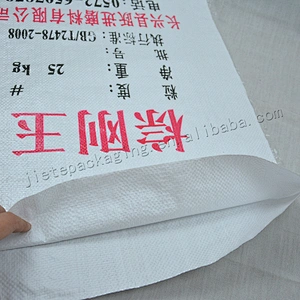 棕刚玉
粒 度: #
净 重: 25 kg
批 号:
执行标准: GB/T2478-2008
电话:
长兴县跃进磨料有限公司
jietepackaging.en.alibaba.com